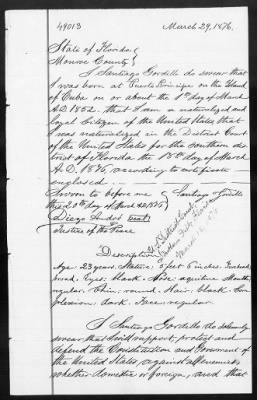 49013
March 29, 1876.
State of Florida
Monroe County
I Santiago Gordillo do swear that
I was born at Puerto Principe on the Island
of Cuba on or about the 1st day of March
A.D. 1852, that I am a naturalized and
loyal Citizen of the United States that I
was naturalized in the District Court
of the United States for the southern dis-
trict of Florida the 18th day of March
A.D. 1876, according to certificate
enclosed.
Sworn to before me Santiago Gordillo
this 20th day of March AD 1876
Diego Andot seal
Justice of the Peace
U.S. District Court
Florida
March 18
Description
Age: 23 years. Stature: 5 feet 6 inches. Forehead:
broad. Eyes: black. Nose: aquiline. Mouth:
regular. Chin: round. Hair: black. Com-
plexion: dark. Face: regular.
I Santiago Gordillo do solemnly
swear that I will support, protect and
defend the Constitution and Government of
the United States, against all enemies,
whether domestic or foreign, and that